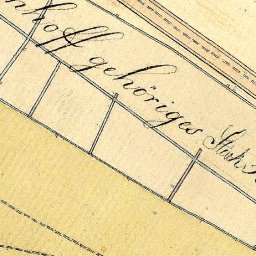 nhoff gehöriges Stück